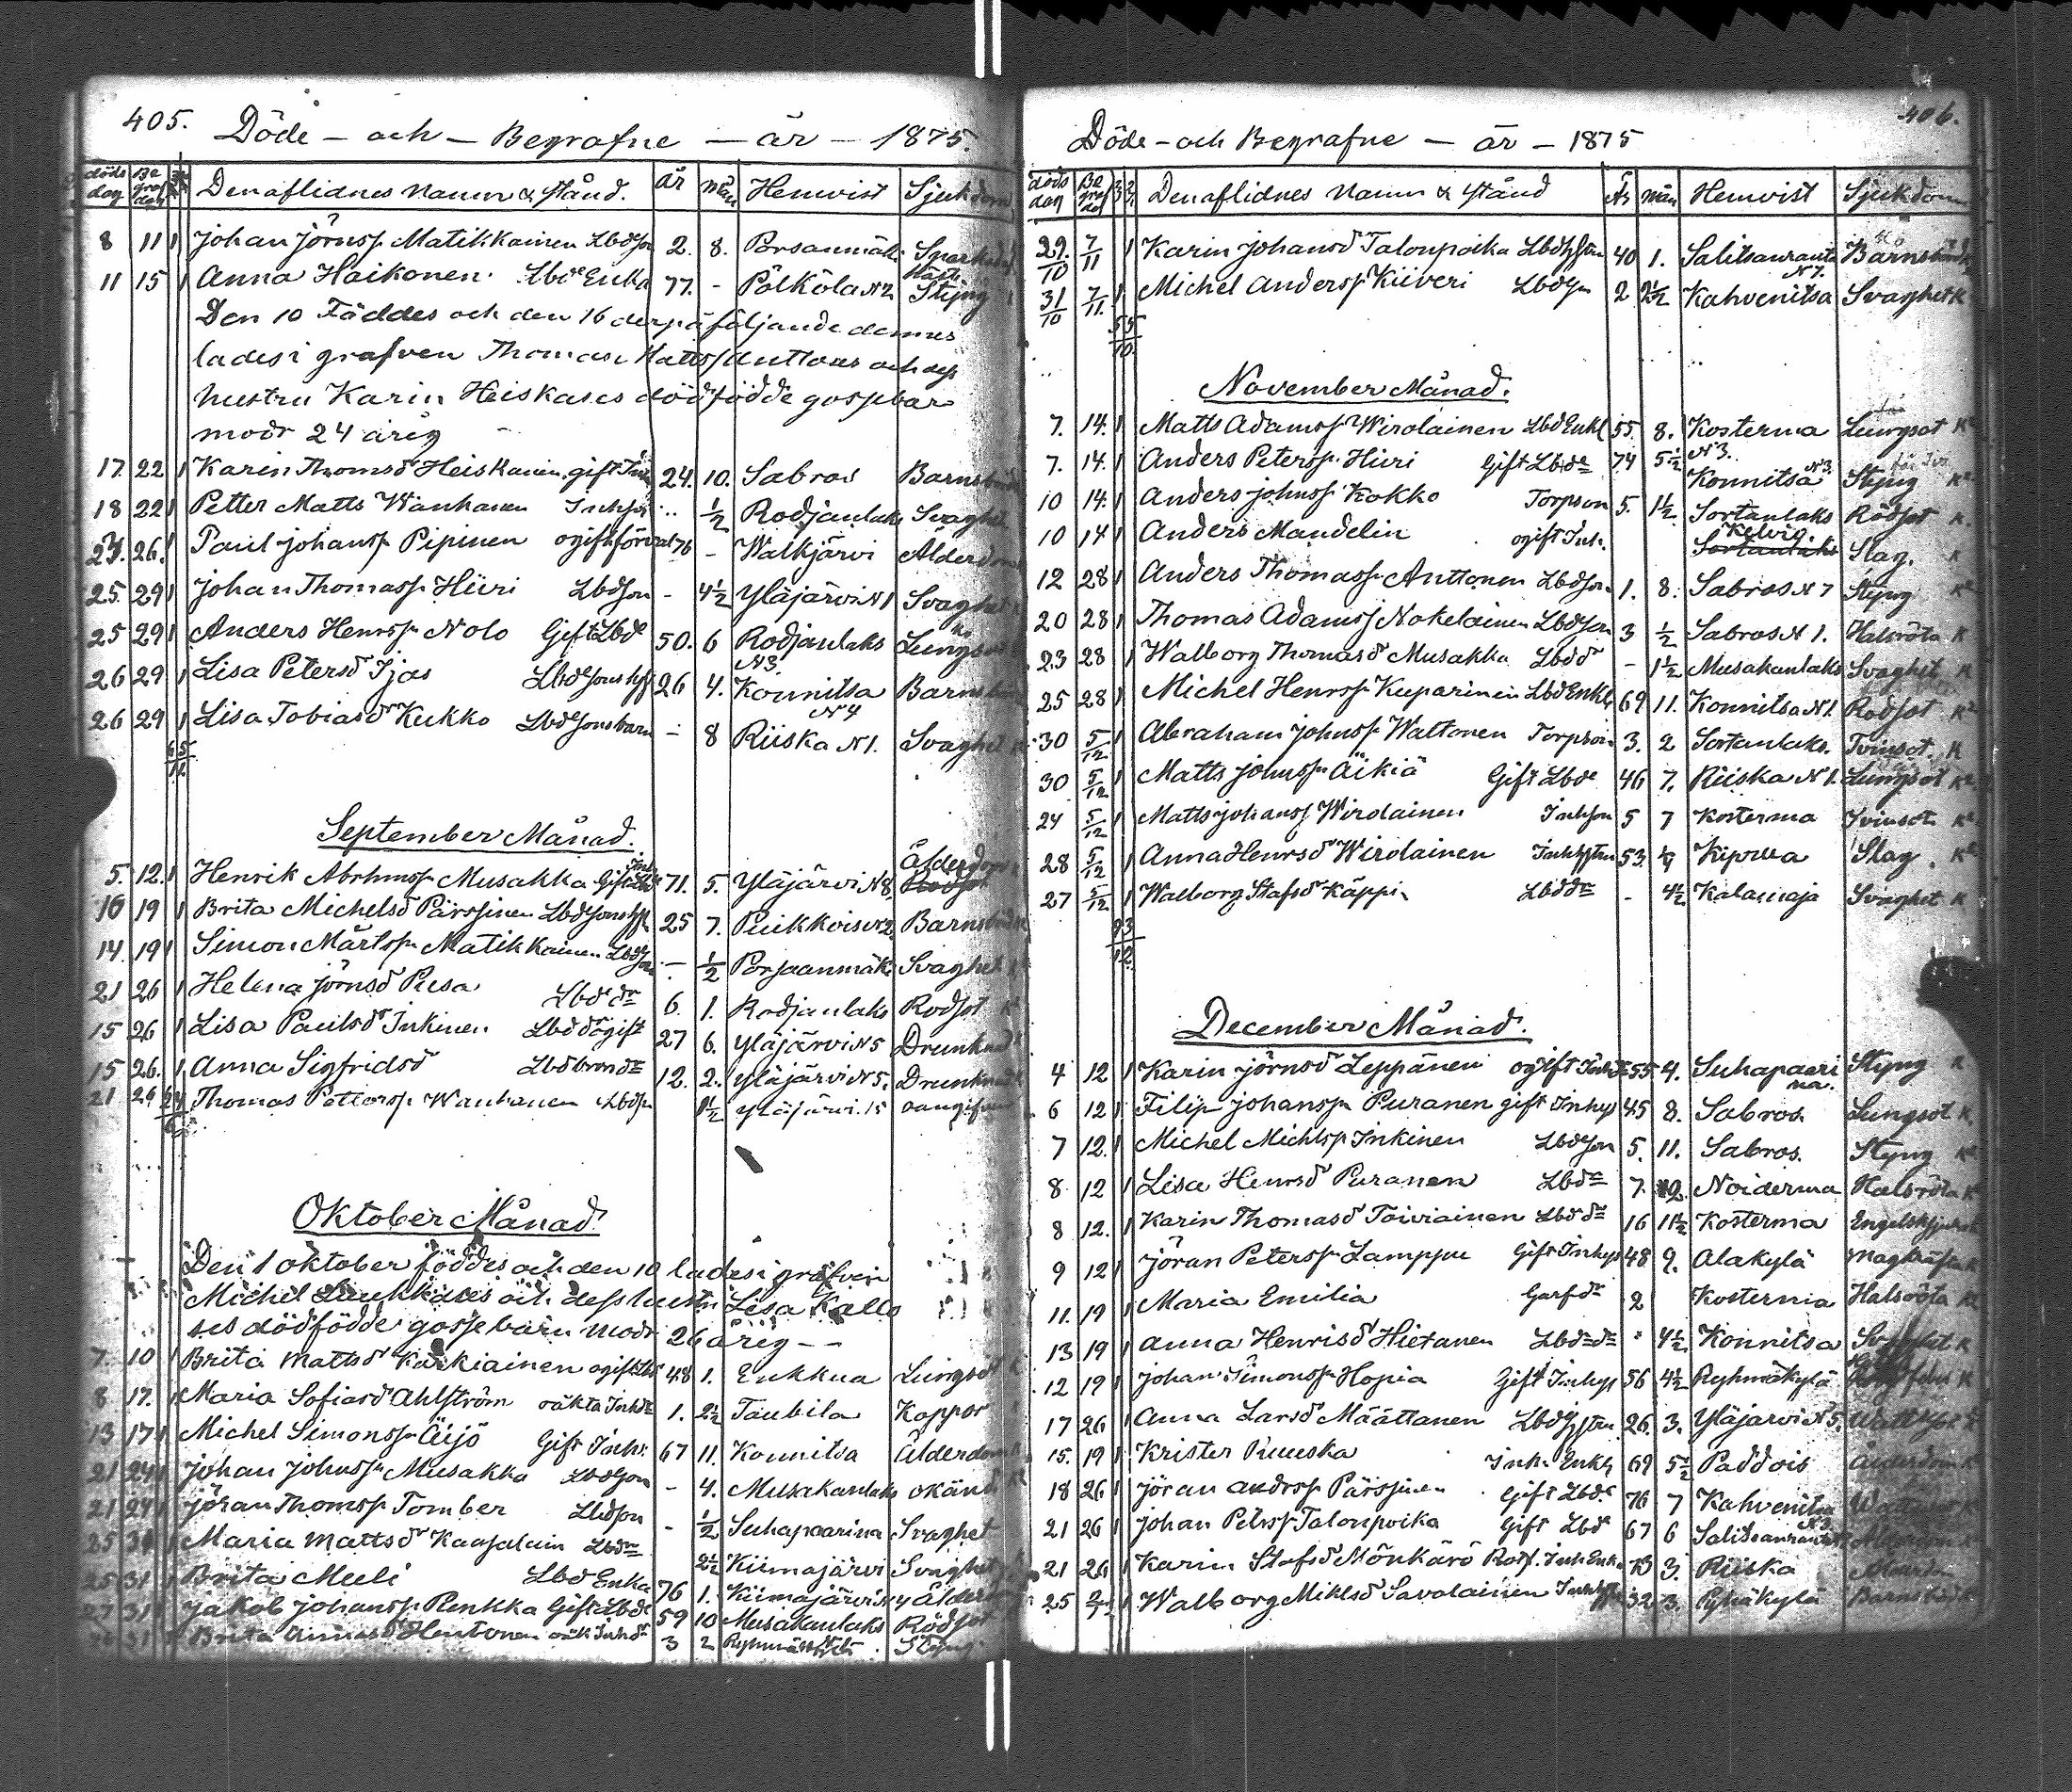 405. Döde - och - Begrafne - år - 1875.
döds dag Be graf dag Den aflidnes Namn & stånd. år mån Hemvist Sjukdom
8 11 1 Johan Jörnss. Matikkainen Lbdson 2. 8. Porsanmäki
11 15 1 Anna Haikonen. Lbde Enka 77. - Pölkölä N2 Styng
Den 10 Föddes och den 16 derpå följande dennes
lades i grafven Thomas Mattss Anttones och dess
hustru Karin Heiskases dödfödde gossebarn
modr 24 årig
17. 22 1 Karin Thomsd Heiskanen, gift 24. 10. Sabros Barnsbörd
18 22 1 Petter Matts Wanhanen Inhson .. ½ Rodjanlaks Svaghet
26. 1 Paul Johanss Pipinen ogift 76 - Walkjärvi Alderdom
25. 29 1 Johan Thomass. Hiiri Lbdson - 4½ Yläjärvi N1 Svaghet
25 29 1 Anders Henrss Nolo Gift Lbde 50. 6 Rodjanlaks Lungsot
N3
26 29 1 Lisa Petersd Ijas Lbdesons h 26 4. Konnitsa Barnsbörd
N4
26 29 1 Lisa Tobiasdr Kukko Lbdesonsbarn - 8 Riiska N1. Svaghet
September Månad.
5. 12. 1 Henrik Abrhmss Musakka Gift 71. 5. Yläjärvi N8. Ålderdom
10 19 1 Brita Michelsd Pärssinen Lbdsons h 25 7. Puikkois N2. Barnsbörd
14. 19 1 Simon Mårtss. Matikkainen Lbdson - ½ Porsaanmäki Svaghet
21 26 1 Helena Jörnsd Pusa Lbde dr 6. 1. Rodjanlaks Rodsot
15 26 1 Lisa Paulsdr Inkinen Lbd dr ogift 27 6. Yläjärvi N5 Drunknad
15 26. 1 Anna Sigfridsd 12. 2. Yläjärvi N5. Drunknad
21 26 Thomas Petterss. Wanhanen Lbdsn 1½ Yläjärvi 15 oangifven
Oktober Månad.
Den 1 oktober föddes och den 10 lades i grafven
Michel och dess hustru Lisa Kallo
ses dödfödde gossebarn modr 26 årig - -
7. 10 1 Brita Mattsd Karkiainen ogift 48 1. Eukkua Lungsot
8 17. 1 Maria Sofiasd Ahlström oäkta Inhdr 1. 2½ Taubila Koppor
13 17 1 Michel Simonss. Äijö Gift Inh. 67 11. Konnitsa Ålderdom
21 24 1 Johan Johnss. Musakka Lbdson - 4. Musakanlaks okänd
21 24 1 Jöran Thomss Tomber Lbdson - ½ Suhapaarina Svaghet
25 31 1 Maria Mattsd Kaasalain Lbddr 2½ Kiimajärvi Svaghet
25 31 1 Brita Meeli Lbd Enka 76 1. Kiimajärvi N4 Ålderdom
27 31 1 Jakob Johanss Renkka Gift Lbde 59 10 Musakanlaks Rödsot
31 1 Brita Annasd Henttonen oäk Inhdr 3 2 Styng.
406.
Döde - och Begrafne - år - 1875
döds dag Be graf dag Den aflidnes Namn & stånd År mån Hemvist Sjukdom
29./10 7/11 1 Karin Johansd Talonpoika Lbdhstru 40 1. Salitsanranta N7. Barnsbörd
31/10 7/11. 1 Michel Anderss Kiiveri Lbdsn 2 2½ Kahvenitsa Svaghet K
November Månad.
7. 14. 1 Matts Adamss Wirolainen Lbd Enkl 55. 8. Kosterma Lungsot K
N3.
7. 14. 1 Anders Peterss. Hiiri Gift Lbde 74 5½ Konnitsa N3 Styng K
10 14. 1 Anders Johnss Kokko Torpson 5. 1½. Sortanlaks Rödsot K
10 14 1 Anders Mandelin ogift Inh. Kelvig. Sortanlaks Slag. K
12 28 1 Anders Thomass. Anttonen Lbdson. 1. 8. Sabros N7 Styng K
20 28 1 Thomas Adamss Nokelainen Lbdson 3 ½ Sabros N1. Halsröta K
23 28 1 Walborg Thomasd Musakka Lbddr - 1½ Musakanlaks Svaghet K
25 28 1 Michel Henrss. Kuparinen Lbd Enkl 69 11. Konnitsa N1. Rodsot K
30 5/12 1 Abraham Johnss Waltonen Torpson 3. 2 Sortanlaks. Tvinsot. K
30 5/12 1 Matts Johnss. Äikiä Gift Lbde 46 7. Riiska N1. Lungsot K
24 5/12 1 Matts Johanss Wirolainen Inhson 5 7 Kosterma Tvinsot K
28 5/12 1 Anna Henrsd Wirolainen Inhhstru 53. Slag. K
27 5/12 1 Walborg Stafsd Käppi Lbddr - 4½ Kalamaja Svaghet K
December Månad.
4 12 1 Karin Jörnsd Leppänen ogift Inhdr 55 4. Suhapaari na. Styng K
6 12 1 Filip Johanss. Puranen gift Inhys 45 8. Sabros Lungsot K
7 12. 1 Michel Michlss Inkinen Lbdeson 5. 11. Sabros. Styng K
8 12 1 Lisa Henrsd Puranen Lbdr 7. 2. Noiderma Halsröta K
8 12. 1 Karin Thomasd Toiviainen Lbddr 16 11½ Kosterma
9 12 1 Jöran Peterss. Lamppu Gift Inhys 48 9. Alakylä Magkräfta K
11. 19 1 Maria Emilia Garfdr 2 Kosterma Halsröta K
13 19 1 Anna Henrisd Hietanen Lbdedr " 4½ Konnitsa Svaghet K
12 19 1 Johan Simonss. Hopia Gift Inhys 56 4½ Ryhmäkylä K
17 26 1 Anna Larsd Määttanen Lbdhstru 26. 3. Yläjärvi N5. Wattusot K
15. 19 1 Krister Ruuska Inh. Enkl 69 5½ Paddois Ålderdom K
18 26 1 Jöran Andrss Pärssinen Gift Lbde 76 7 Kahvenitsa
21 26 1 Johan Petrss Talonpoika Gift Lbde 67 6 Salitsanranta N3 Ålderdom K
21 26 1 Karin Stafsd Mönkärö Rotf. Inh Enka 73 3. Riiska
25 1 Walborg Miklsd Savolainen Inhh 32 3. Pyhäkylä Barnsbörd